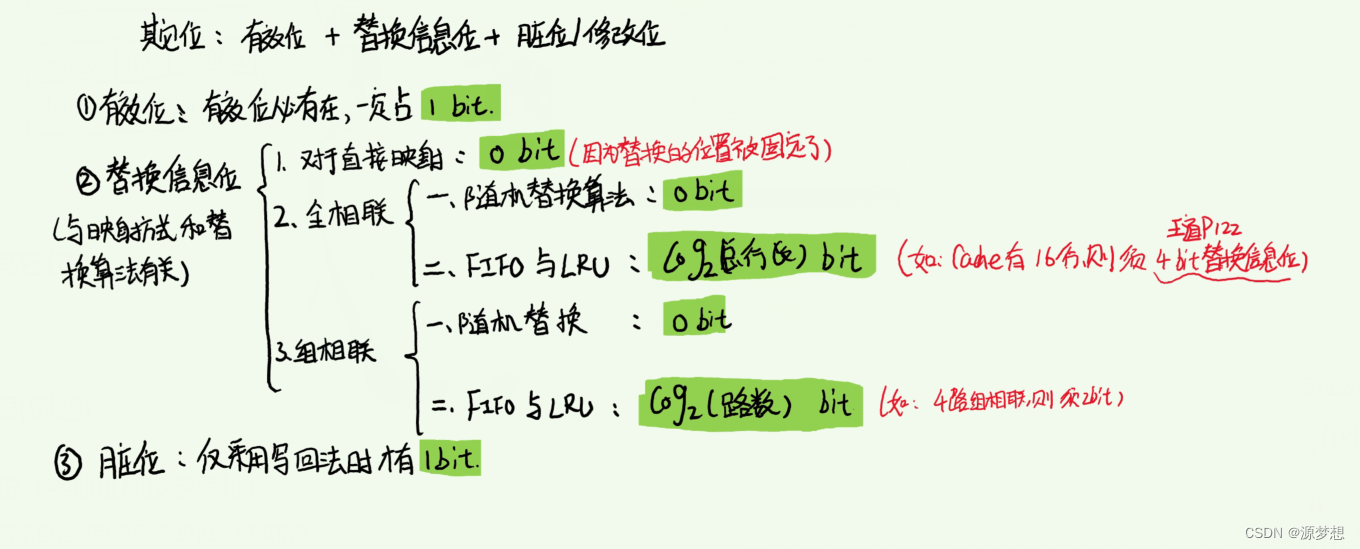 其它位：有效位 + 替换信息位 + 脏位/修改位
①有效位：有效位必有在，一定占 1 bit.
②替换信息位
(与映射方式和替
换算法有关)
1. 对于直接映射：0 bit (因为替换的位置被固定了)
2. 全相联
一、随机替换算法：0 bit
二、FIFO 与 LRU：log2(总行数) bit (如：Cache有16行，则须4bit替换信息位)
王道P122
3.组相联
一、随机替换：0 bit
二. FIFO 与 LRU：log2(路数) bit (如：4路组相联，则须2bit)
③ 脏位：仅采用写回法时才有 1bit.
CSDN @源梦想